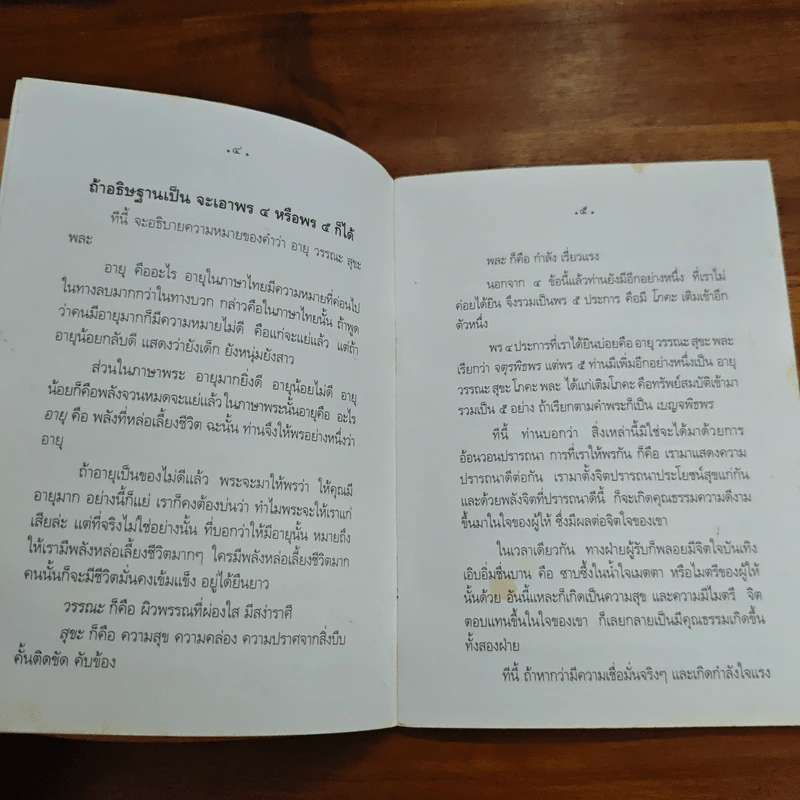 •๔•
ถ้าอธิษฐานเป็น จะเอาพร ๔ หรือพร ๕ ก็ได้
ทีนี้ จะอธิบายความหมายของคำว่า อายุ วรรณะ สุขะ
พละ
อายุ คืออะไร อายุในภาษาไทยมีความหมายที่ค่อนไป
ในทางลบมากกว่าในทางบวก กล่าวคือในภาษาไทยนั้น ถ้าพูด
ว่าคนมีอายุมากก็มีความหมายไม่ดี คือแก่จะแย่แล้ว แต่ถ้า
อายุน้อยกลับดี แสดงว่ายังเด็ก ยังหนุ่มยังสาว
ส่วนในภาษาพระ อายุมากยิ่งดี อายุน้อยไม่ดี อายุ
น้อยก็คือพลังจวนหมดจะแย่แล้ว ในภาษาพระนั้นอายุคือ อะไร
อายุ คือ พลังที่หล่อเลี้ยงชีวิต ฉะนั้น ท่านจึงให้พรอย่างหนึ่งว่า
อายุ
ถ้าอายุเป็นของไม่ดีแล้ว พระจะมาให้พรว่า ให้คุณมี
อายุมาก อย่างนี้ก็แย่ เราก็คงต้องบ่นว่า ทำไมพระจะให้เราแก่
เสียล่ะ แต่ที่จริงไม่ใช่อย่างนั้น ที่บอกว่าให้มีอายุนั้น หมายถึง
ให้เรามีพลังหล่อเลี้ยงชีวิตมากๆ ใครมีพลังหล่อเลี้ยงชีวิตมาก
คนนั้นก็จะมีชีวิตมั่นคงเข้มแข็ง อยู่ได้ยืนยาว
วรรณะ ก็คือ ผิวพรรณที่ผ่องใส มีสง่าราศี
สุขะ ก็คือ ความสุข ความคล่อง ความปราศจากสิ่งบีบ
คั้นติดขัด คับข้อง
•๕•
พละ ก็คือ กำลัง เรี่ยวแรง
นอกจาก ๔ ข้อนี้แล้วท่านยังมีอีกอย่างหนึ่ง ที่เราไม่
ค่อยได้ยิน จึงรวมเป็นพร ๕ ประการ คือมี โภคะ เติมเข้าอีก
ตัวหนึ่ง
พร ๔ ประการที่เราได้ยินบ่อยคือ อายุ วรรณะ สุขะ พละ
เรียกว่า จตุรพิธพร แต่พร ๕ ท่านมีเพิ่มอีกอย่างหนึ่งเป็น อายุ
วรรณะ สุขะ โภคะ พละ ได้แก่เติมโภคะ คือทรัพย์สมบัติเข้ามา
รวมเป็น ๕ อย่าง ถ้าเรียกตามคำพระก็เป็น เบญจพิธพร
ทีนี้ ท่านบอกว่า สิ่งเหล่านี้มิใช่จะได้มาด้วยการ
อ้อนวอนปรารถนา การที่เราให้พรกัน ก็คือ เรามาแสดงความ
ปรารถนาดีต่อกัน เรามาตั้งจิตปรารถนาประโยชน์สุขแก่กัน
และด้วยพลังจิตที่ปรารถนาดีนี้ ก็จะเกิดคุณธรรมความดีงาม
ขึ้นมาในใจของผู้ให้ ซึ่งมีผลต่อจิตใจของเขา
ในเวลาเดียวกัน ทางฝ่ายผู้รับก็พลอยมีจิตใจบันเทิง
เอิบอิ่มชื่นบาน คือ ซาบซึ้งในน้ำใจเมตตา หรือไมตรีของผู้ให้
นั้นด้วย อันนี้แหละก็เกิดเป็นความสุข และความมีไมตรี จิต
ตอบแทนขึ้นในใจของเขา ก็เลยกลายเป็นมีคุณธรรมเกิดขึ้น
ทั้งสองฝ่าย
ทีนี้ ถ้าหากว่ามีความเชื่อมั่นจริงๆ และเกิดกำลังใจแรง